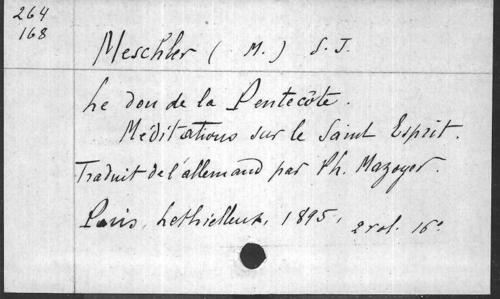 264
168
Meschler (M.) S. J.
Le don de la Pentecôte.
Méditations sur le Saint Esprit.
Traduit de l'allemand par Ph. Mazoyer.
Paris, Lethielleux, 1895, 2 vol. 16°